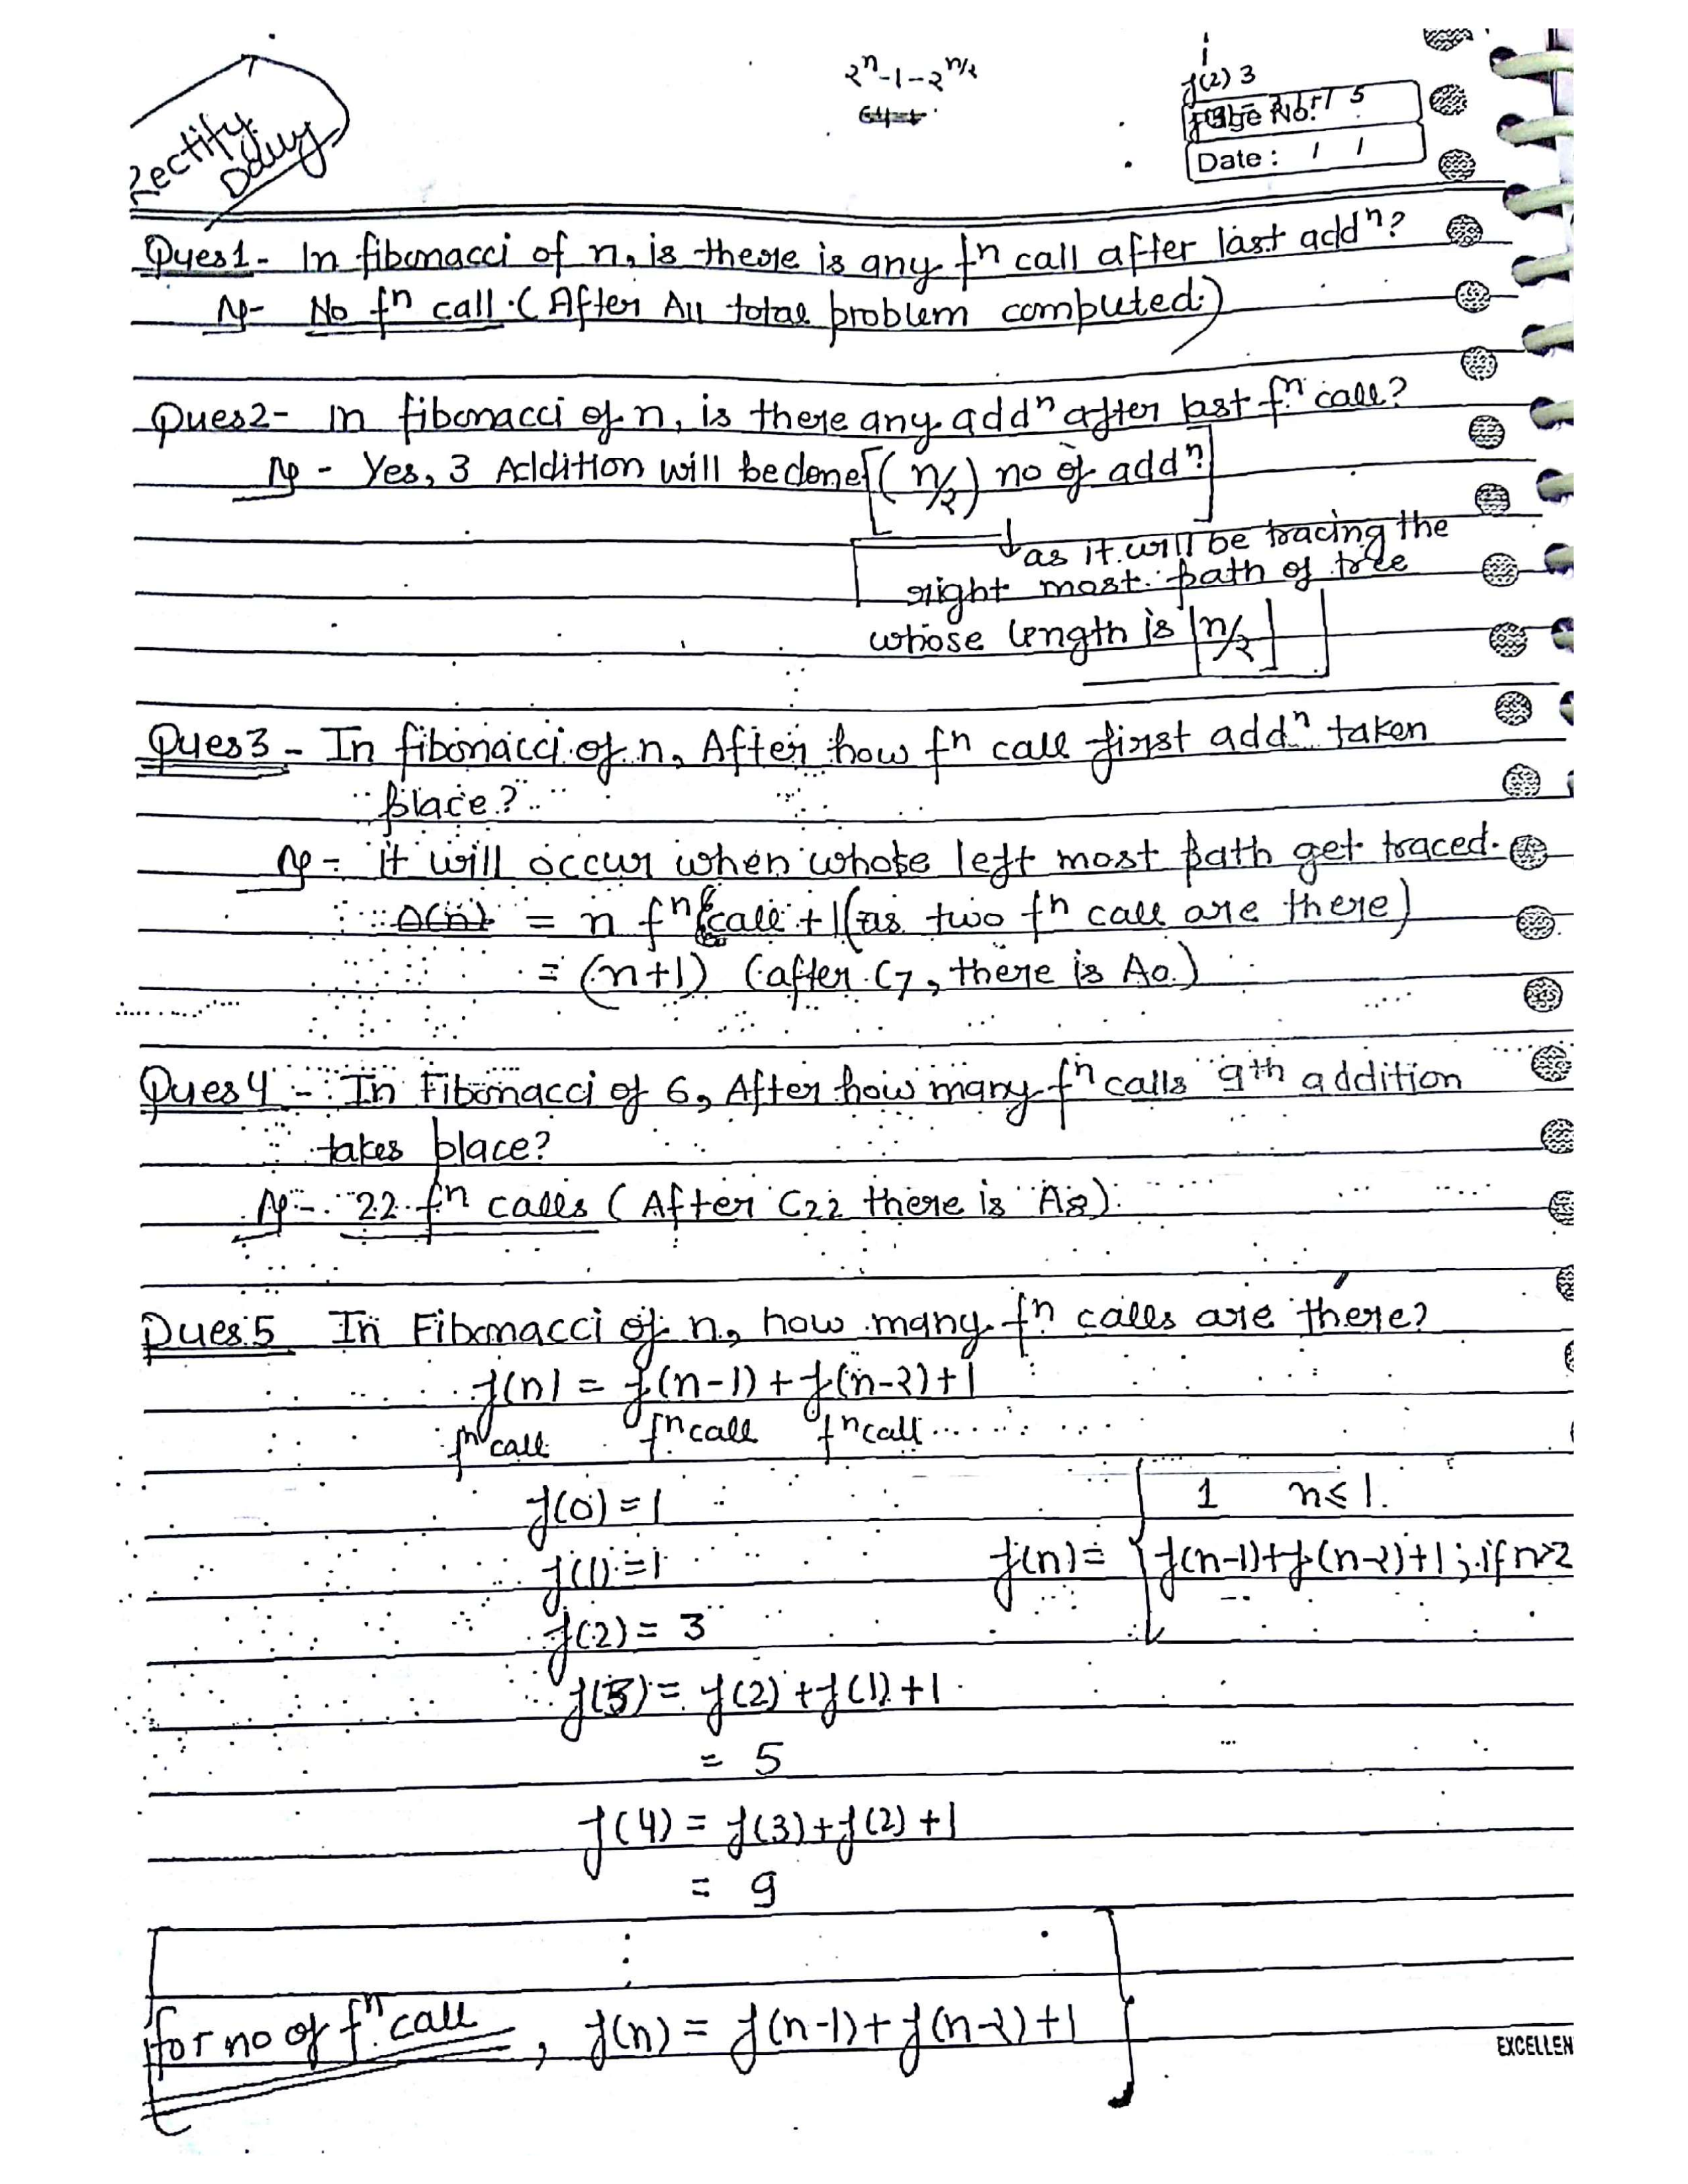 Rectify
Daily
2^n-1-2^n/2
f(2) 3
5
Page No:
Date : / /
Ques1- In fibonacci of n, is there is any fn call after last addn?
No fn call. (After All total problem computed.)
Ques2- In fibonacci of n, is there any addn after last fn call?
- Yes, 3 Addition will be done [(n/2) no of addn]
as it will be tracing the
right most path of tree
whose length is ⌊n/2⌋]
Ques3 - In fibonacci of n, After how fn call first addn taken
place?
- it will occur when whose left most path get traced.
= n fn call + 1 (as two fn call are there)
= (n+1) (after C7, there is A0.)
Ques4 - In Fibonacci of 6, After how many fn calls 9th addition
takes place?
- 22 fn calls (After C22 there is A8).
Ques.5 In Fibonacci of n, how many fn calls are there?
f(n) = f(n-1) + f(n-2) + 1
fn call fn call fn call
f(0) = 1
1 n≤1.
f(1) = 1
f(n) = f(n-1)+f(n-2)+1; if n≥2
f(2) = 3
f(3) = f(2) + f(1) + 1
= 5
f(4) = f(3) + f(2) + 1
= 9
for no of fn call, f(n) = f(n-1) + f(n-2) + 1
EXCELLEN